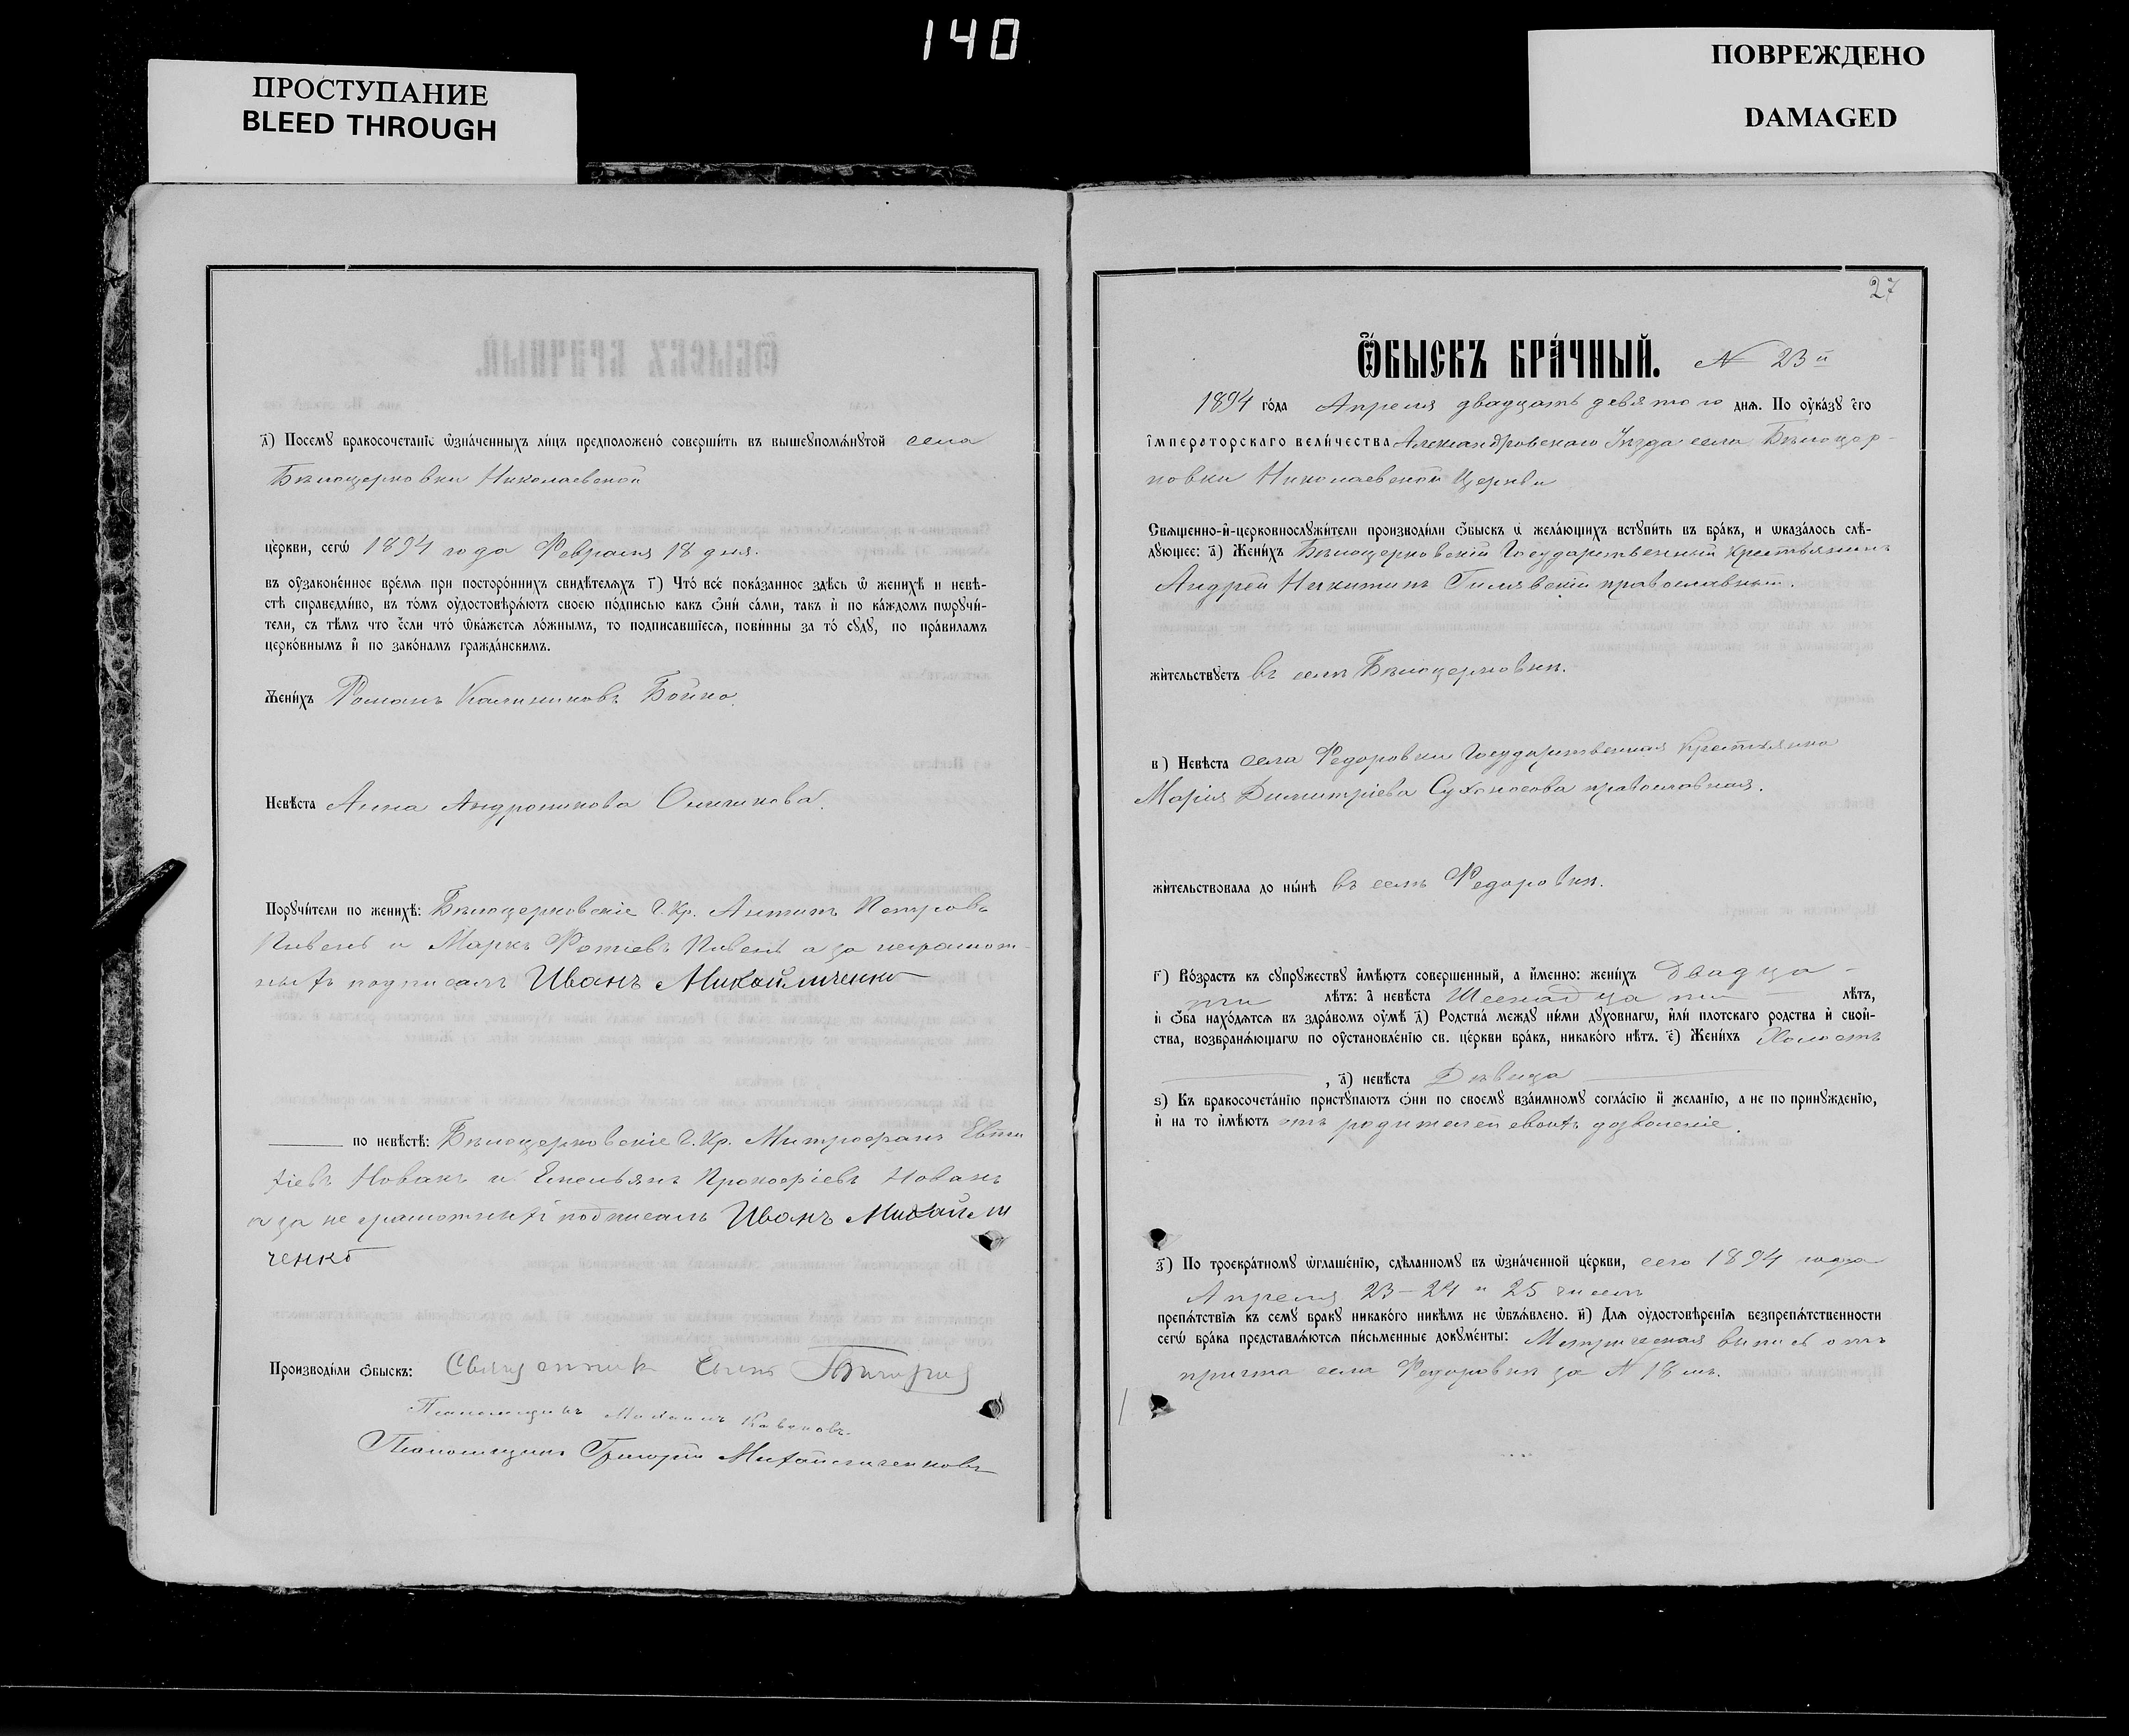 140
ПРОСТУПАНИЕ
BLEED THROUGH
ПОВРЕЖДЕНО
DAMAGED
д҃) Посемꙋ бракосочетанїе ѡ҆зна́ченныхъ ли́цъ предположено̀ соверши́ть въ вышеꙋпомѧ́нꙋтой села
Бѣлоцерковки Николаевской
це́ркви, сегѡ̀ 1894 года Февраля 18 дня.
въ оу҆зако́ненное вре́мѧ при посторо́ннихъ свидѣ́телѧхъ г҃) Что̀ все́ пока́занное здѣ́сь ѡ҆ женихѣ̀ и невѣ́-
стѣ справедли́во, въ то́мъ оу҆достовѣрѧ́ютъ своею по́дписью какъ ѻ҆нѝ са́ми, такъ и҆ по ка́ждомъ порꙋчи́-
тели, съ тѣ́мъ что є҆́сли что̀ ѡ҆ка́жетсѧ ло́жнымъ, то подписавшїесѧ, пови́нны за то̀ сꙋдꙋ̀, по пра́виламъ
церко́внымъ и҆ по зако́намъ гражда́нскимъ.
Жени́хъ Романъ Калиниковъ Бойко.
Невѣ́ста Анна Андроникова Оличкова.
Порꙋчи́тели по женихѣ̀: Бѣлоцерковскіе Г. Кр. Антипъ Петровъ
Пивень и Маркъ Фотіевъ Пивень а за неграмот-
ныхъ подписалъ Иванъ Михайличенко
по невѣ́стѣ: Бѣлоцерковскіе Г. Кр. Митрофанъ Евти
хіевъ Новакъ и Емельянъ Прокофіевъ Новакъ
а за не грамотныхъ подписалъ Иванъ Михайли
ченко
Производи́ли ѻ҆́быскъ: Священникъ
Псаломщикъ
Псаломщикъ Григорій Михайличенковъ
27
Ѻ҆́БЫСКЪ БРА́ЧНЫЙ. № 23й
1894 го́да Апреля двадцать девятого днѧ̀. По оу҆ка́зꙋ є҆гѡ̀
і҆мпера́торскаго вели́чества Александровскаго Уѣзда села Бѣлоцер-
ковки Николаевской Церкви
Свѧще́нно-и҆-церковнослꙋжи́тели производи́ли ѻ҆́быскъ ѡ҆ жела́ющихъ встꙋпи́ть въ бра́къ, и ѡ҆каза́лось слѣ́-
дꙋющее: а҃) Жени́хъ Бѣлоцерковскій Государственный крестьянинъ
Андрей Никитинъ Гилявскій православный.
жи́тельствꙋетъ въ селѣ Бѣлоцерковки.
в҃) Невѣ́ста села Федоровки Государственная крестьянка
Марія Димитріева Сухоносова православная.
жи́тельствовала до ны́нѣ въ селѣ Федоровки.
г҃) Во́зрастъ къ сꙋпрꙋ́жествꙋ и҆мѣ́ютъ соверше́нный, а и҆́менно: жени́хъ двадца-
ти лѣ́тъ: а҆ невѣ́ста Шеснадцати лѣ́тъ,
и҆ ѻ҆́ба нахо́дѧтсѧ въ здра́вомъ оу҆мѣ̀ д҃) Родства̀ междꙋ ни́ми дꙋхо́внагѡ, и҆лѝ пло́тскаго родства̀ и҆ свой-
ства̀, возбранѧ́ющагѡ по оу҆становле́нїю св. це́ркви бра́къ, никако́го нѣ́тъ. є҃) Жени́хъ Холостъ
, а҃) невѣ́ста Дѣвица
ѕ҃) Къ бракосочета́нїю пристꙋпа́ютъ ѻ҆нѝ по своемꙋ̀ взаи́мномꙋ согла́сїю и҆ жела́нїю, а не по принꙋжде́нїю,
и҆ на то и҆мѣ́ютъ отъ родителей своихъ дозволеніе.
з҃) По троекра́тномꙋ ѡ҆глаше́нїю, сдѣ́ланномꙋ въ ѡ҆зна́ченной це́ркви, сего 1894 года
Апреля 23 - 24 и 25 чиселъ
препѧ́тствїѧ къ семꙋ̀ бра́кꙋ никако́го никѣ́мъ не ѡ҆б̾ѧ́влено. и҃) Для оу҆достовѣ́ренїѧ безпрепѧ́тственности
сегѡ̀ бра́ка представлѧ́ютсѧ пи́сьменные докꙋме́нты: Метрическая выпись отъ
причта села Федоровки за № 18мъ.